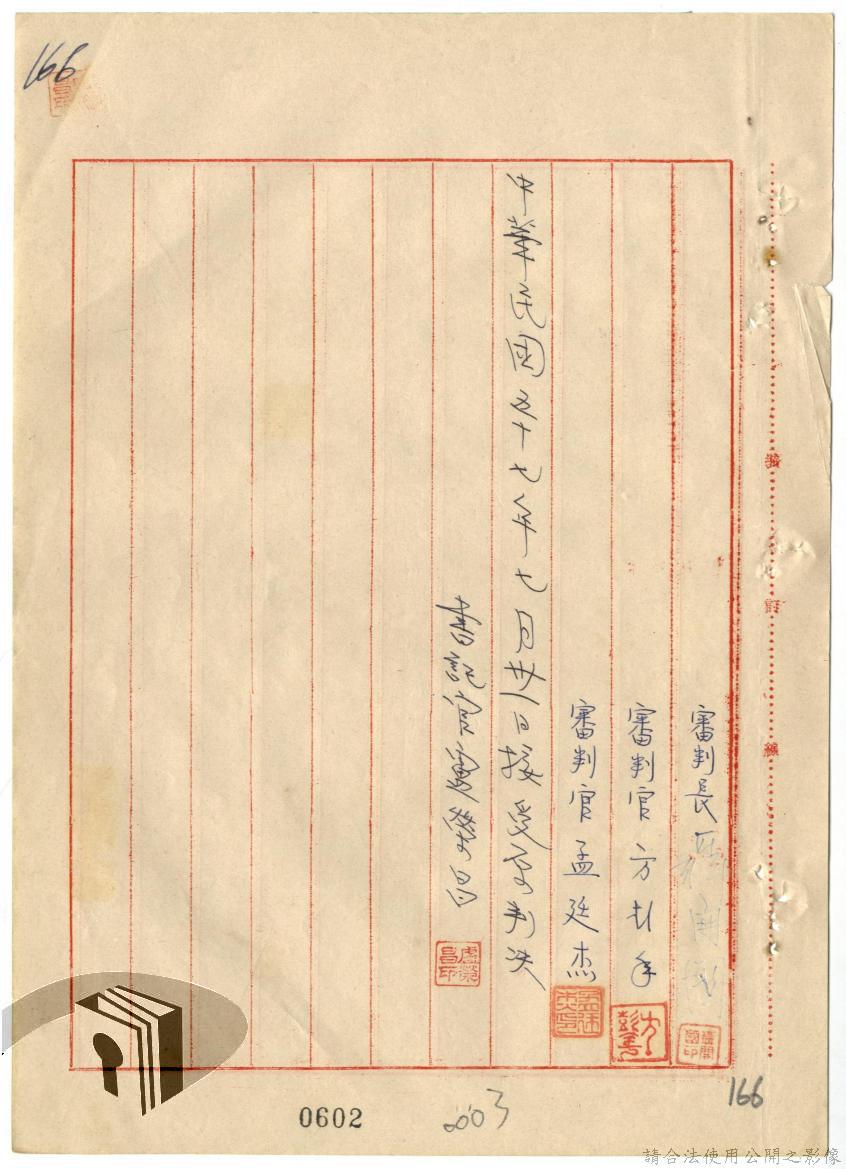 166
審判長
審判官方彭年
審判官孟廷杰
中華民國五十七年七月廿八日接受原判決
書記官盧榮昌
盧榮昌印
裝
訂
線
166
0602
0003
請合法使用公開之影像